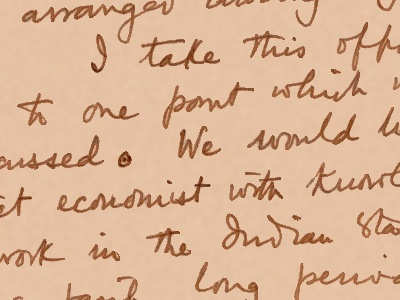 arranged
I take this oppo
to one point which
cussed. We would li
et economist with knowl
work in the Indian Sta
long period